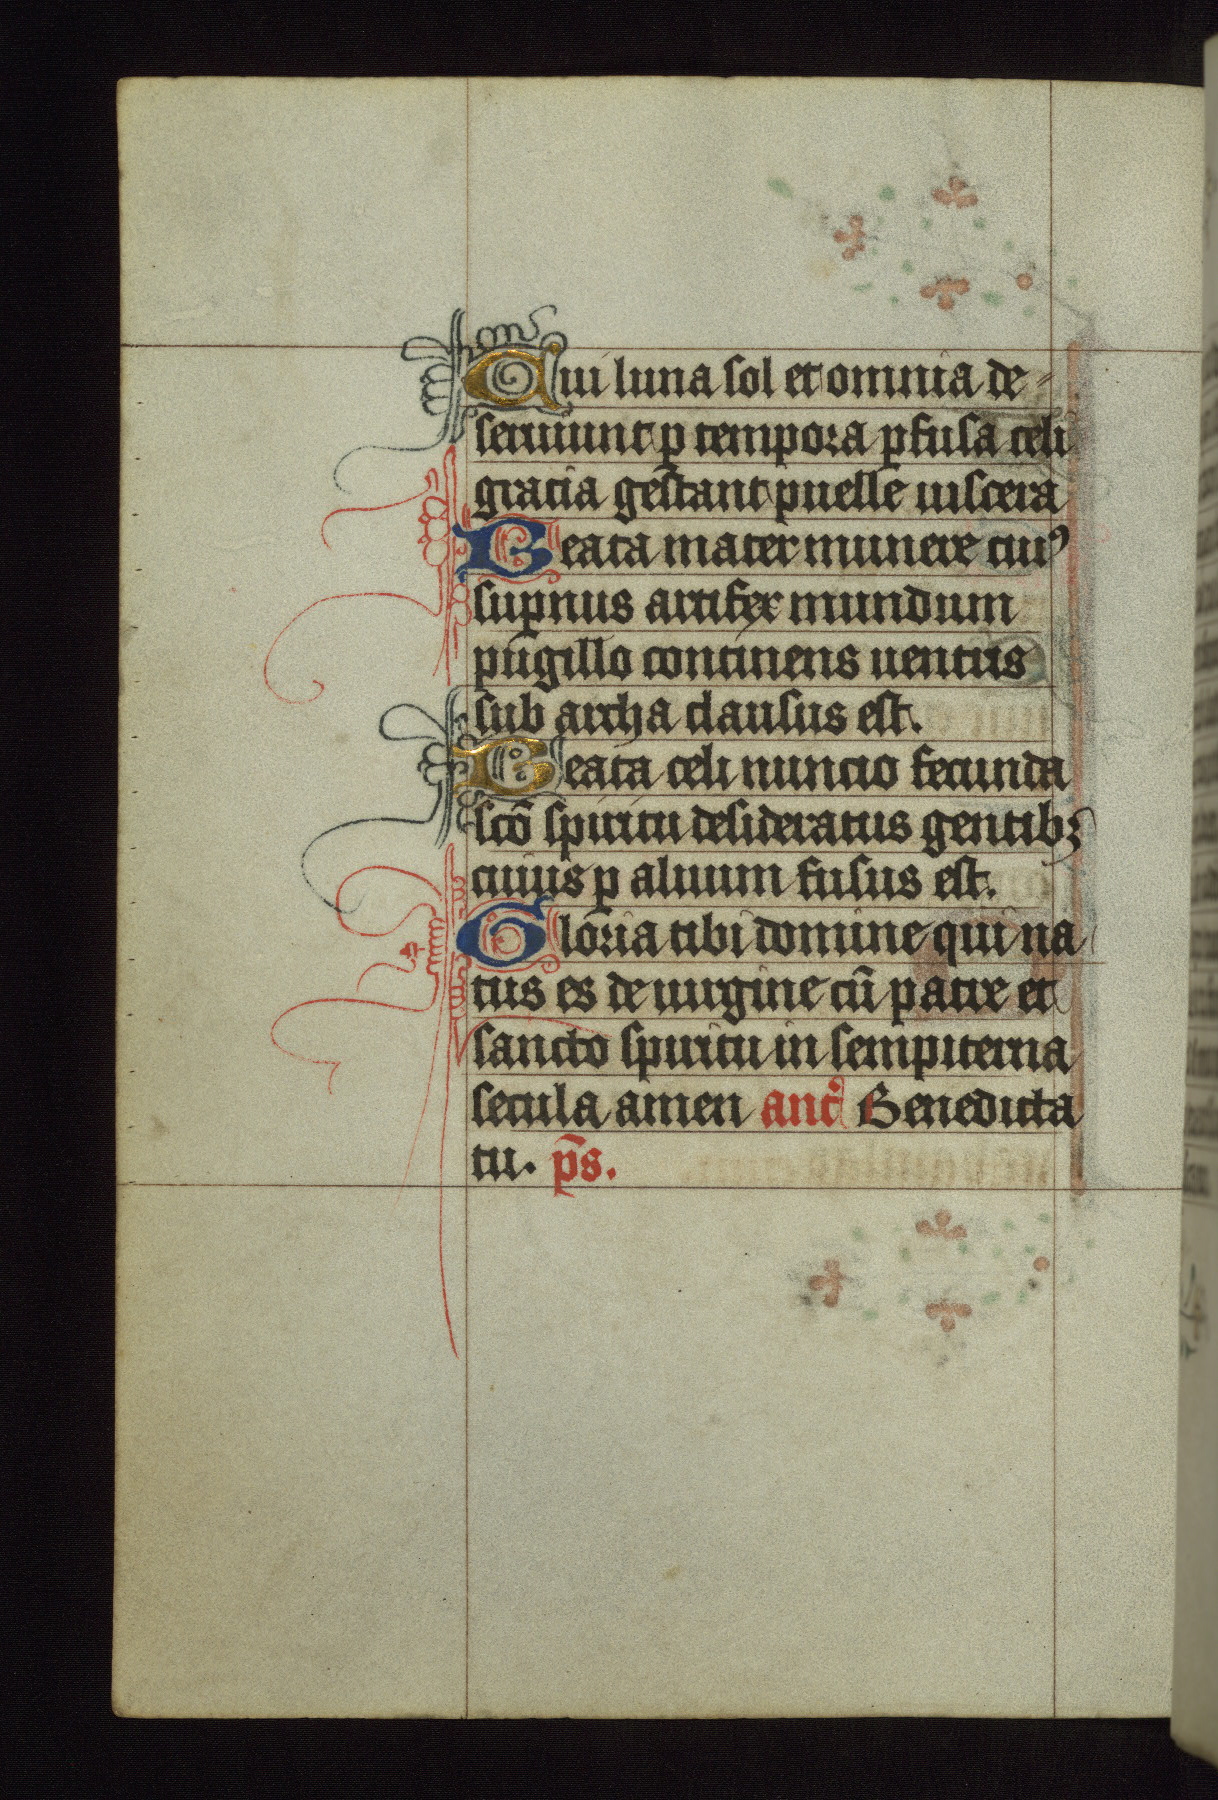 Qui luna sol et omnia de-
seruiunt ꝑ tempora ꝑfusa celi
gracia gestant puelle uiscera
Beata mater munere cuiꝰ
suꝑnus artifex mundum
pugillo continens uentris
sub archa clausus est.
Beata celi nuncio fecunda
sc̄o spiritu desideratus gentibꝫ
cuius ꝑ aluum fusus est.
Gloria tibi domine qui na
tus es de uirgine cū patre et
sancto spiritu in sempiterna
secula amen an̄t Benedicta
tu. p̄s.